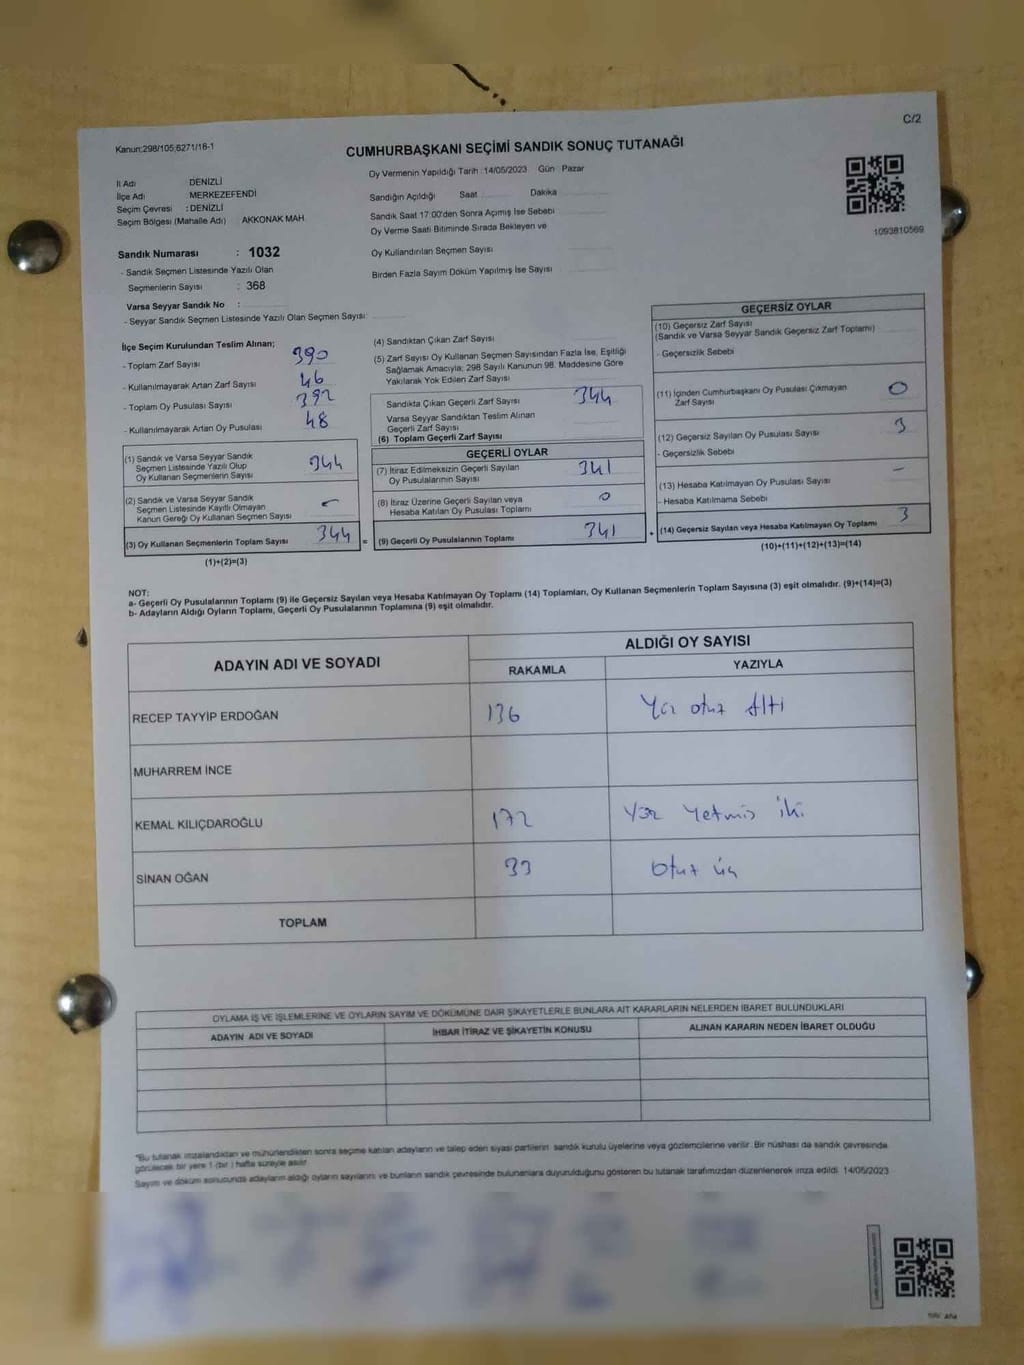 C/2
Kanun:298/105;6271/16-1
CUMHURBAŞKANI SEÇİMİ SANDIK SONUÇ TUTANAĞI
İl Adı DENİZLİ
İlçe Adı MERKEZEFENDİ
Seçim Çevresi : DENİZLİ
Seçim Bölgesi (Mahalle Adı) AKKONAK MAH.
Oy Vermenin Yapıldığı Tarih :14/05/2023 Gün Pazar
Sandığın Açıldığı Saat Dakika
Sandık Saat 17:00'den Sonra Açımış İse Sebebi
Oy Verme Saati Bitiminde Sırada Bekleyen ve
Oy Kullandırılan Seçmen Sayısı
Birden Fazla Sayım Döküm Yapılmış İse Sayısı
1093810569
Sandık Numarası : 1032
- Sandık Seçmen Listesinde Yazılı Olan
Seçmenlerin Sayısı : 368
Varsa Seyyar Sandık No :
- Seyyar Sandık Seçmen Listesinde Yazılı Olan Seçmen Sayısı:
İlçe Seçim Kurulundan Teslim Alınan;
- Toplam Zarf Sayısı 390
- Kullanılmayarak Artan Zarf Sayısı 46
- Toplam Oy Pusulası Sayısı 392
- Kullanılmayarak Artan Oy Pusulası 48
(1) Sandık ve Varsa Seyyar Sandık
Seçmen Listesinde Yazılı Olup
Oy Kullanan Seçmenlerin Sayısı 344
(2) Sandık ve Varsa Seyyar Sandık
Seçmen Listesinde Kayıtlı Olmayan
Kanun Gereği Oy Kullanan Seçmen Sayısı -
(3) Oy Kullanan Seçmenlerin Toplam Sayısı 344 =
(1)+(2)=(3)
(4) Sandıktan Çıkan Zarf Sayısı
(5) Zarf Sayısı Oy Kullanan Seçmen Sayısından Fazla İse, Eşitliği
Sağlamak Amacıyla; 298 Sayılı Kanunun 98. Maddesine Göre
Yakılarak Yok Edilen Zarf Sayısı
Sandıkta Çıkan Geçerli Zarf Sayısı 344
Varsa Seyyar Sandıktan Teslim Alınan
Geçerli Zarf Sayısı
(6) Toplam Geçerli Zarf Sayısı
GEÇERLİ OYLAR
(7) İtiraz Edilmeksizin Geçerli Sayılan
Oy Pusulalarının Sayısı 341
(8) İtiraz Üzerine Geçerli Sayılan veya
Hesaba Katılan Oy Pusulası Toplamı 0
(9) Geçerli Oy Pusulalarının Toplamı 341 +
GEÇERSİZ OYLAR
(10) Geçersiz Zarf Sayısı
(Sandık ve Varsa Seyyar Sandık Geçersiz Zarf Toplamı)
- Geçersizlik Sebebi
(11) İçinden Cumhurbaşkanı Oy Pusulası Çıkmayan
Zarf Sayısı 0
(12) Geçersiz Sayılan Oy Pusulası Sayısı 3
- Geçersizlik Sebebi
(13) Hesaba Katılmayan Oy Pusulası Sayısı -
- Hesaba Katılmama Sebebi
(14) Geçersiz Sayılan veya Hesaba Katılmayan Oy Toplamı 3
(10)+(11)+(12)+(13)=(14)
NOT:
a- Geçerli Oy Pusulalarının Toplamı (9) ile Geçersiz Sayılan veya Hesaba Katılmayan Oy Toplamı (14) Toplamları, Oy Kullanan Seçmenlerin Toplam Sayısına (3) eşit olmalıdır. (9)+(14)=(3)
b- Adayların Aldığı Oyların Toplamı, Geçerli Oy Pusulalarının Toplamına (9) eşit olmalıdır.
ADAYIN ADI VE SOYADI
ALDIĞI OY SAYISI
RAKAMLA YAZIYLA
RECEP TAYYİP ERDOĞAN 136 Yüz otuz Altı
MUHARREM İNCE
KEMAL KILIÇDAROĞLU 172 Yüz Yetmis iki
SİNAN OĞAN 33 Otuz üç
TOPLAM
OYLAMA İŞ VE İŞLEMLERİNE VE OYLARIN SAYIM VE DÖKÜMÜNE DAİR ŞİKAYETLERLE BUNLARA AİT KARARLARIN NELERDEN İBARET BULUNDUKLARI
ADAYIN ADI VE SOYADI İHBAR İTİRAZ VE ŞİKAYETİN KONUSU ALINAN KARARIN NEDEN İBARET OLDUĞU
*Bu tutanak imzalandıktan ve mühürlendikten sonra seçime katılan adayların ve talep eden siyasi partilerin sandık kurulu üyelerine veya gözlemcilerine verilir. Bir nüshası da sandık çevresinde
görülecek bir yere 1 (bir) hafta süreyle asılır.
Sayım ve döküm sonucunda adayların aldığı oyların sayılarını ve bunların sandık çevresinde bulunanlara duyurulduğunu gösteren bu tutanak tarafımızdan düzenlenerek imza edildi. 14/05/2023